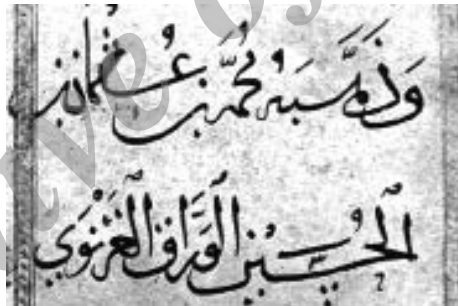 وَذَهَّبَهُ مُحَمَّد بن عُثْمَان بن
الحُسَين الوَرَّاق الغَزْنَوِي